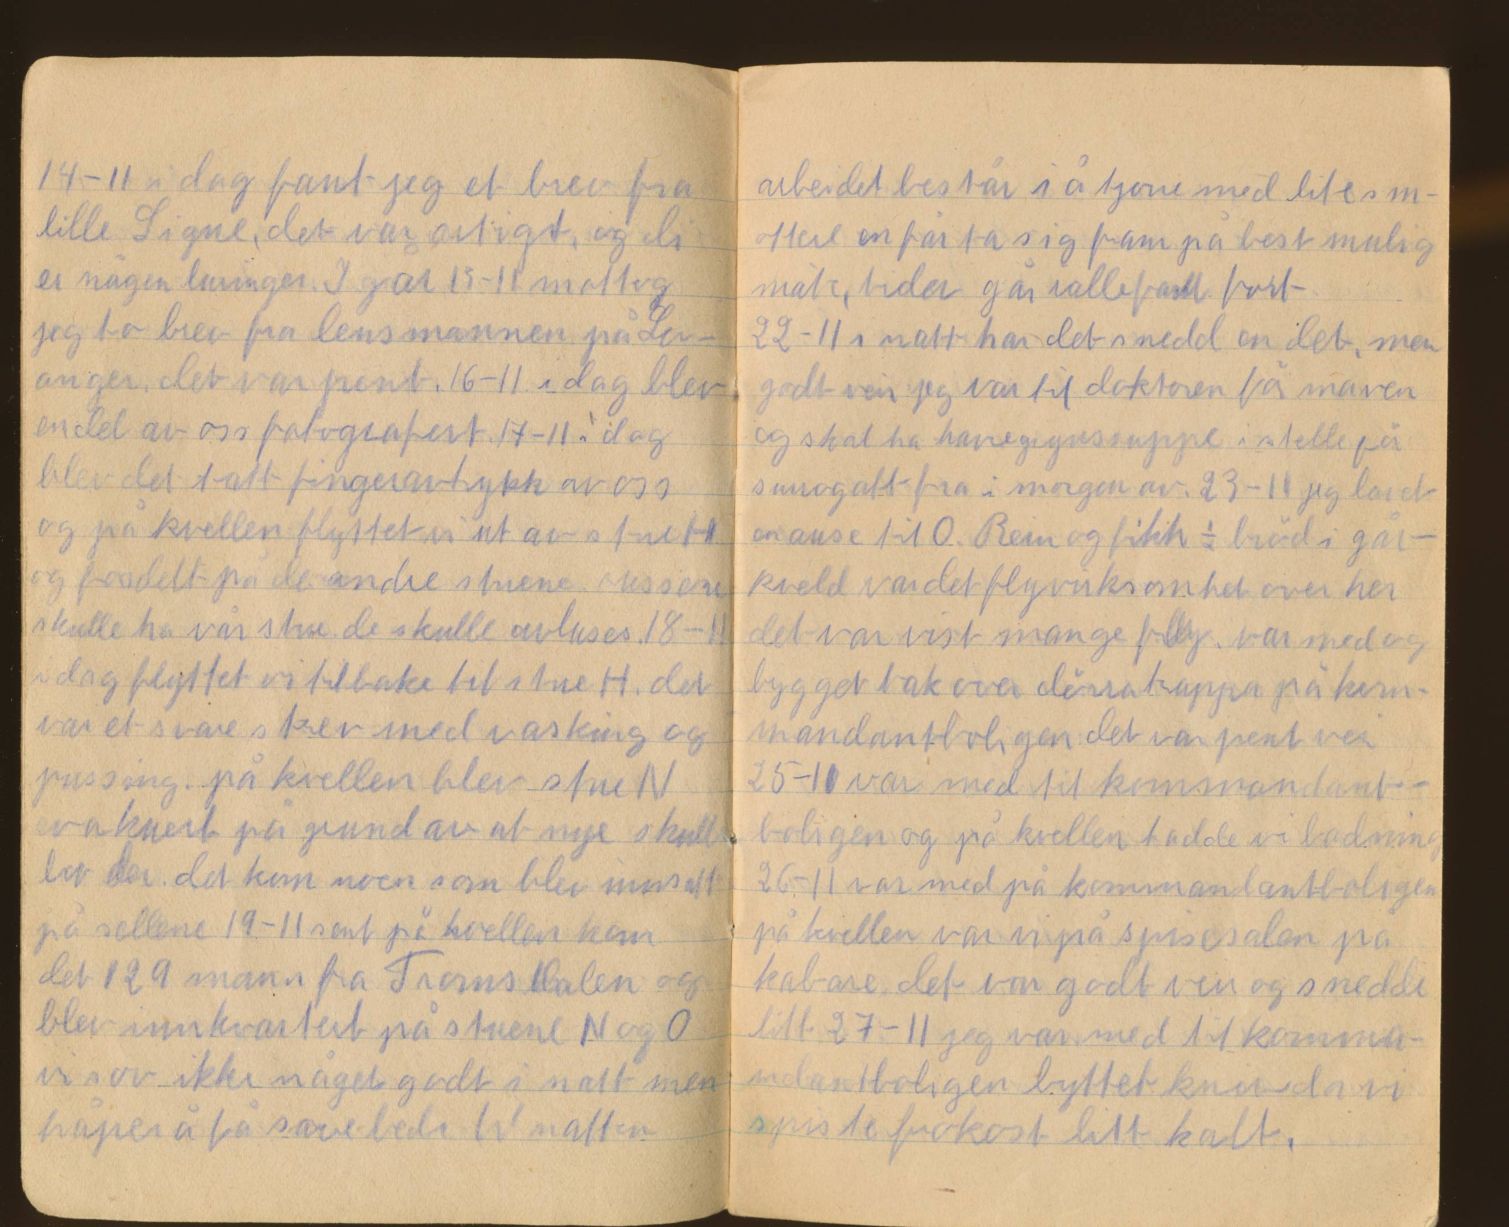 14-11 i dag fant jeg et brev fra
lille Signe, det var artigt, og di
er någen luringer. I går 15-11 mottog
jeg to brev fra lensmannen på Lev-
anger, det var pent. 16-11 i dag blev
endel av oss fotografert. 17-11 i dag
blev det tatt fingeravtrykk av oss
og på kvellen flyttet vi ut av stue H
og fordelt på de andre stuene. russerne
skulle ha vår stue de skulle avluses. 18-11
i dag flyttet vi tilbake til stue H. det
var et svare strev med vasking og
pussing. på kvellen blev stue N
evakuert på grund av at nye skulle
bo der. det kom noen som blev innsatt
på sellene 19-11 sent på kvellen kom
det 129 mann fra Tromsdalen og
blev innkvartert på stuene N og O
vi sov ikke någet godt i natt men
håper å få sove bedre til natten
arbeidet består i å tjone med lite sm-
ottere en får ta sig fram på best mulig
måte, tiden går iallefall fort
22-11 i natt har det snedd en del, men
godt veir jeg var til doktoren får maven
og skal ha havregrynssuppe istelle får
surrogatt fra i morgen av. 23-11 jeg
til O. Rein og fikk ½ bröd i går-
kveld var det flyvirksomhet over her
det var vist mange fly. var med og
bygget tak over dörratrappa på kom-
mandantboligen det var pent veir
25-11 var med til kommandant-
boligen og på kvellen hadde vi badning
26-11 var med på kommandantboligen
på kvellen var vi på spisesalen på
kabare. det var godt veir og snedde
litt 27-11 jeg var med til komma-
ndantboligen byttet kniv da vi
spiste frokost litt kalt.